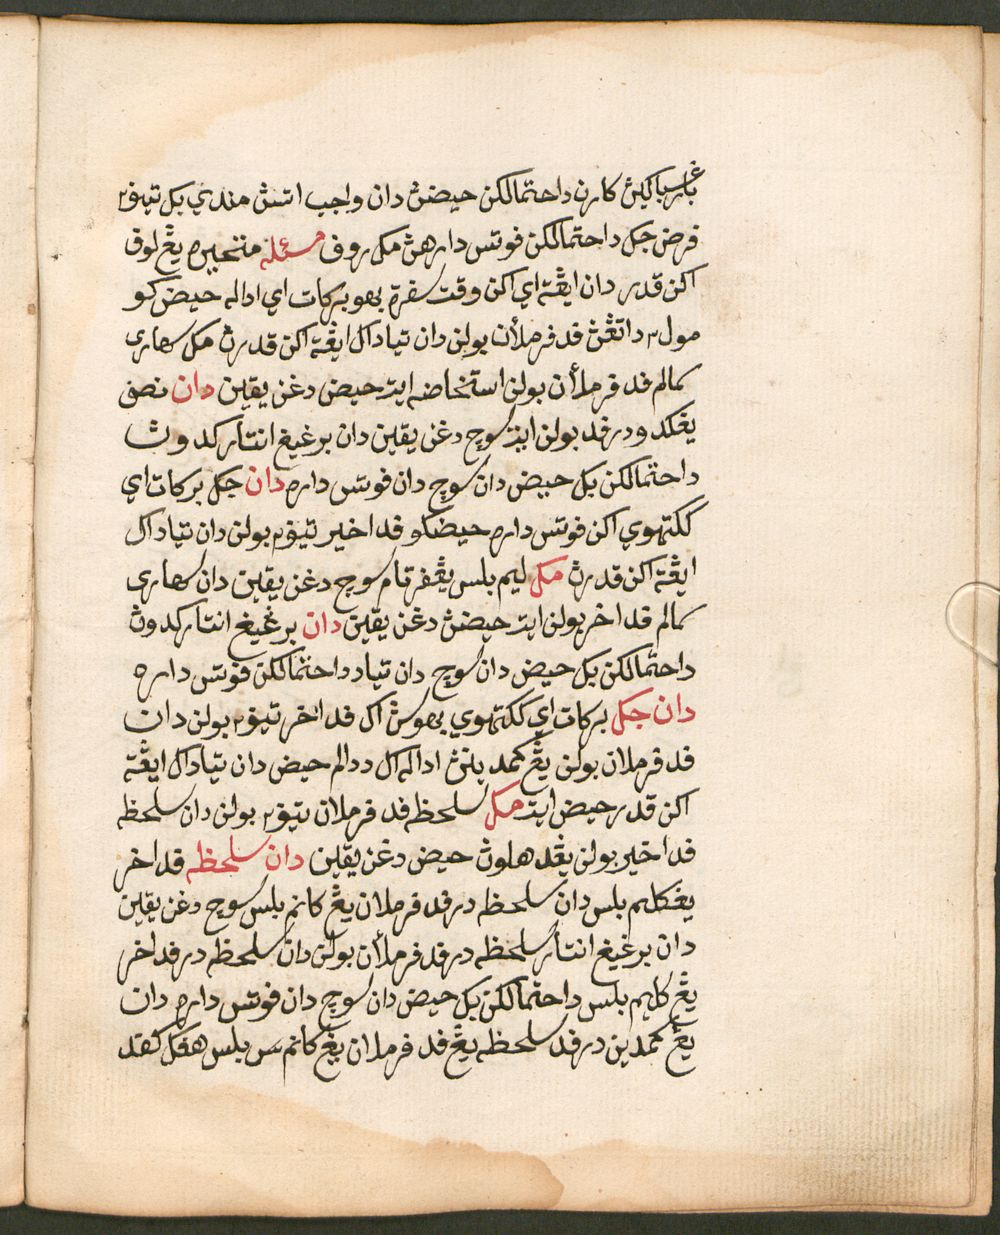 باۑق كارن داحتمالكن حيضڽ دان واجب اتسڽ مندي بݢ تيڤ٢
فرض جك داحتمالكن ڤوتس دارهڽ مك روڤ مسئله متحيره يڠ لوڤ
اكن قدر دان ايڠة اي اكن وقت سڤرة بهو بركات اي اداله حيض كو
مول٢ داتڠڽ ڤد ڤرملأن بولن دان تياد اك ايڠة اكن قدرڽ مك سهاري
سمالم ڤد ڤرملأن بولن استحاضه ايت حيض دڠن يقين دان نصف
يڠكدو درڤد بولن ايت سوچ دڠن يقين دان برڠيڠ انتار كدوڽ
داحتمالكن بݢ حيض دان سوچ دان ڤوتس داره دان جك بركات اي
ككتهوي اكن ڤوتس داره حيضكو ڤد اخير تيڤ٢ بولن دان تياد اك
ايڠة اكن قدرڽ مك ليم بلس يڠڤرتام سوچ دڠن يقين دان سهاري
سمالم ڤد اخر بولن ايت حيضڽ دڠن يقين دان برڠيڠ انتار كدوڽ
داحتمالكن بݢ حيض دان سوچ دان تياد داحتمالكن ڤوتس داره
دان جك بركات اي ككتهوي بهوسڽ اك ڤد اخر تيڤ٢ بولن دان
ڤد ڤرملان بولن يڠ كمدينڽ اداله اك ددالم حيض دان تياد اك ايڠة
اكن قدر حيض ايت مك سلحظه ڤد ڤرملان تيڤ٢ بولن دان سلحظه
ڤد اخير بولن يڠدهلوڽ حيض دڠن يقين دان سلحظه ڤد اخر
يڠكليم بلس دان سلحظه درڤد ڤرملان يڠ كانم بلس سوچ دڠن يقين
دان برڠيڠ انتار سلحظه درڤد ڤرملأن بولن دان سلحظه درڤد اخر
يڠ كليم بلس داحتمالكن بݢ حيض دان سوچ دان ڤوتس داره دان
يڠ كمدين درڤد سلحظه يڠ ڤد ڤرملان يڠ كانم بلس هڠݢ كڤد